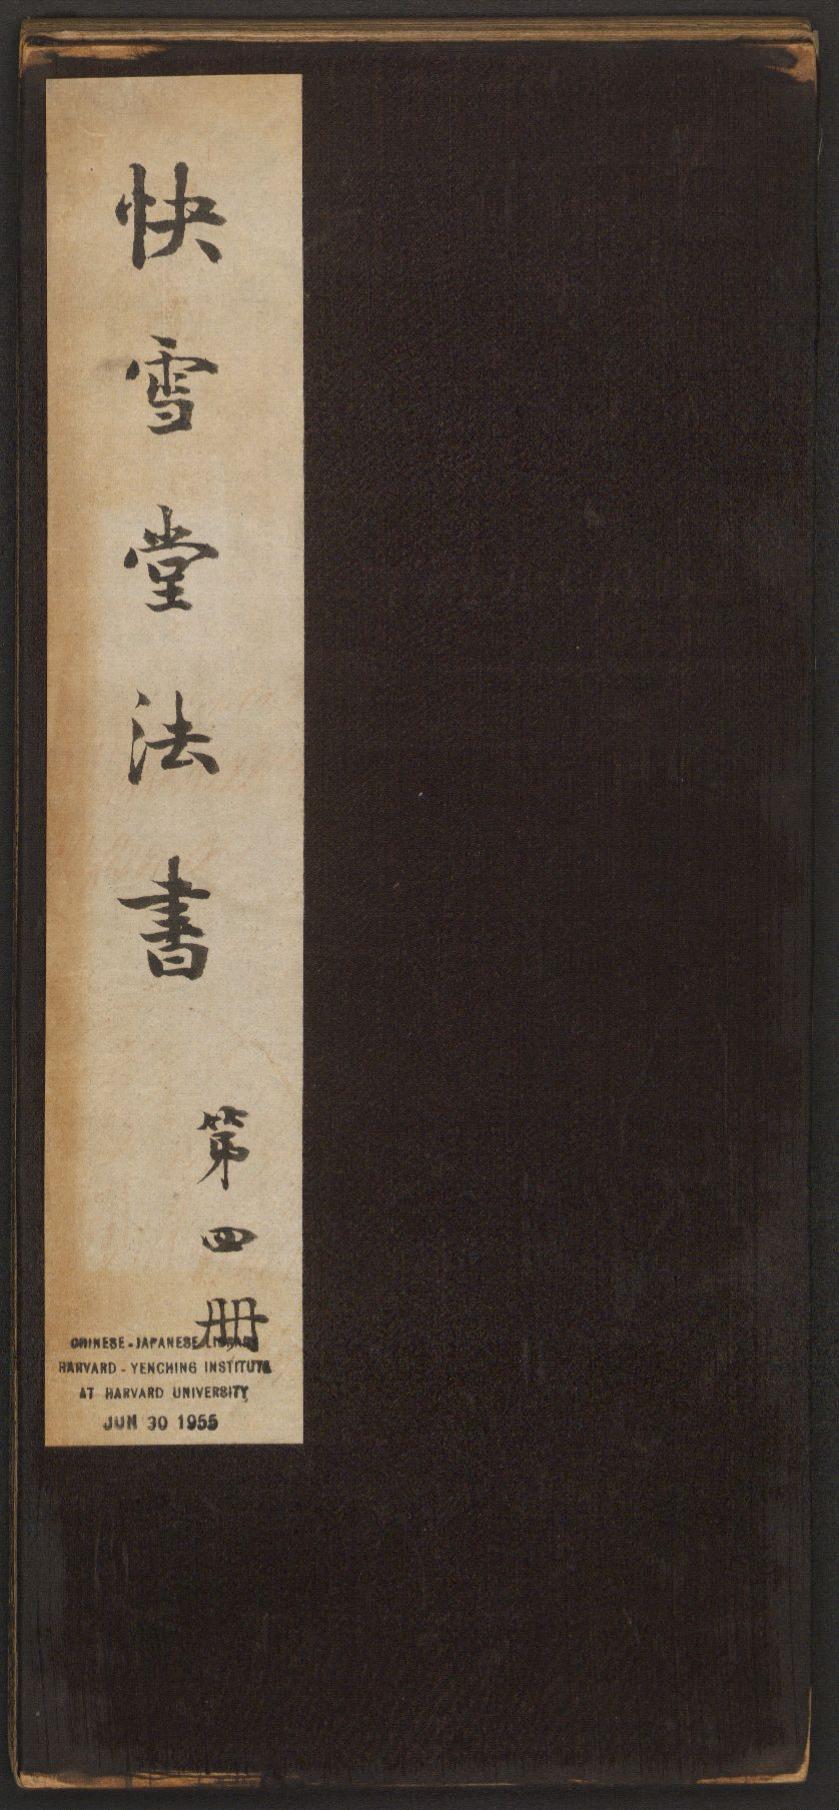 快雪堂法書
第四册
CHINESE-JAPANESE LIBRARY
HARVARD-YENCHING INSTITUTE
AT HARVARD UNIVERSITY
JUN 30 1955